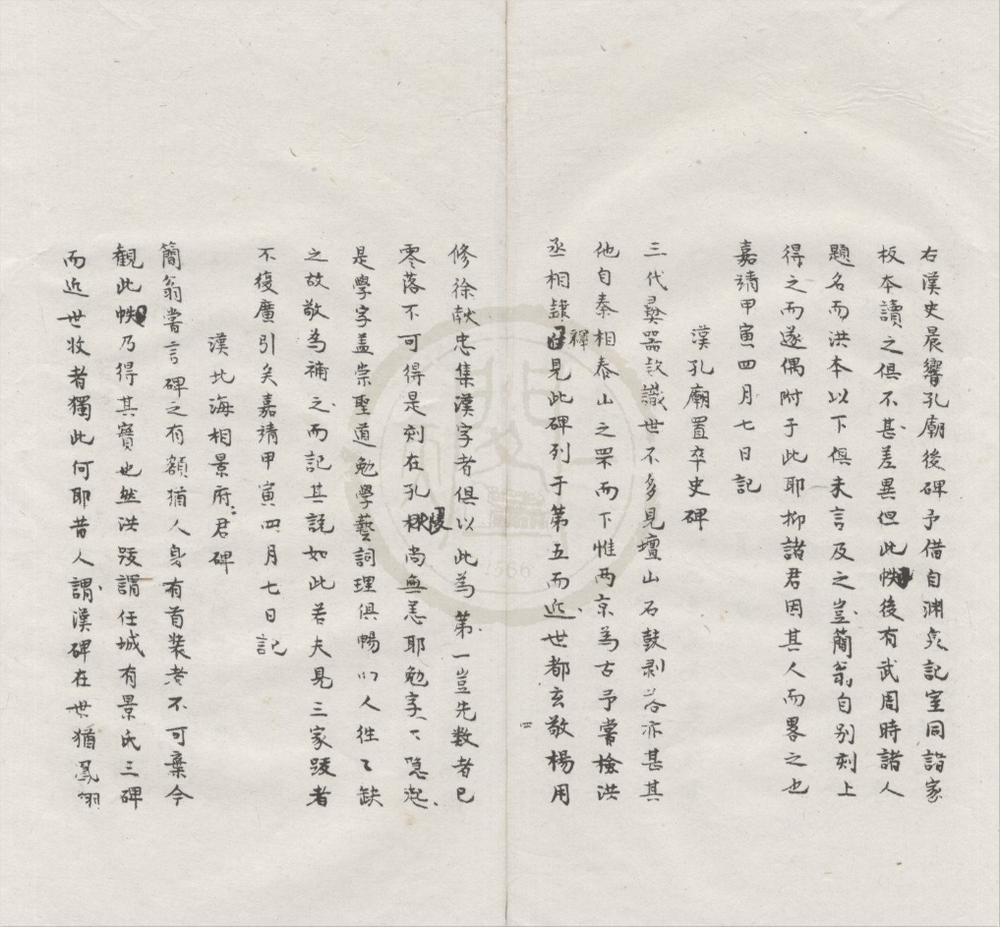 右漢史晨饗孔廟後碑予借自淵泉記室同諸家
板本讀之俱不甚差異但此帙後有武周時諸人
題名而洪本以下俱未言及之豈簡翁自別刻上
得之而遂偶附于此耶抑諸君因其人而畧之也
嘉靖甲寅四月七日記
漢孔廟置卒史碑
三代彛器欵識世不多見壇山石鼓剥落亦甚其
他自秦相泰山之罘而下惟两京為古予常檢洪
丞相隷釋見此碑列于第五而近世都玄敬楊用
四
修徐献忠集漢字者俱以此為第一豈先数者已
零落不可得是刻在孔林尚無恙耶勉字下隐起
是學字盖崇聖道勉學藝詞理俱暢以人徃々缺
之故敬為補之而記其説如此若夫見三家跋者
不復廣引矣嘉靖甲寅四月七日記
漢北海相景府君碑
簡翁嘗言碑之有額猶人身有首装者不可棄今
観此帙乃得其寳也然洪跋謂任城有景氏三碑
而近世收者獨此何耶昔人謂漢碑在世猶鳳翎
1566